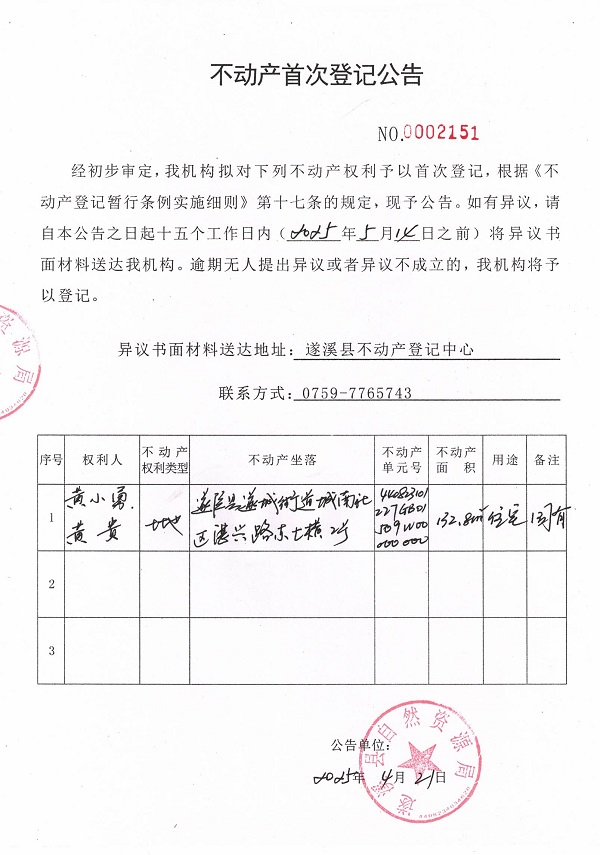 不动产首次登记公告
NO.0002151
经初步审定，我机构拟对下列不动产权利予以首次登记，根据《不
动产登记暂行条例实施细则》第十七条的规定，现予公告。如有异议，请
自本公告之日起十五个工作日内（2025年5月14日之前）将异议书
面材料送达我机构。逾期无人提出异议或者异议不成立的，我机构将予
以登记。
异议书面材料送达地址：遂溪县不动产登记中心
联系方式：0759-7765743
序号 权利人 不动产权利类型 不动产坐落 不动产单元号 不动产面积 用途 备注
1 黄小勇、黄贵 土地 遂溪县遂城街道城南社区湛兴路东七横2号 440823101227GB01509W00000000 132.8m² 住宅 共有
2
3
公告单位：
2025年4月21日
遂溪县自然资源局
资源局